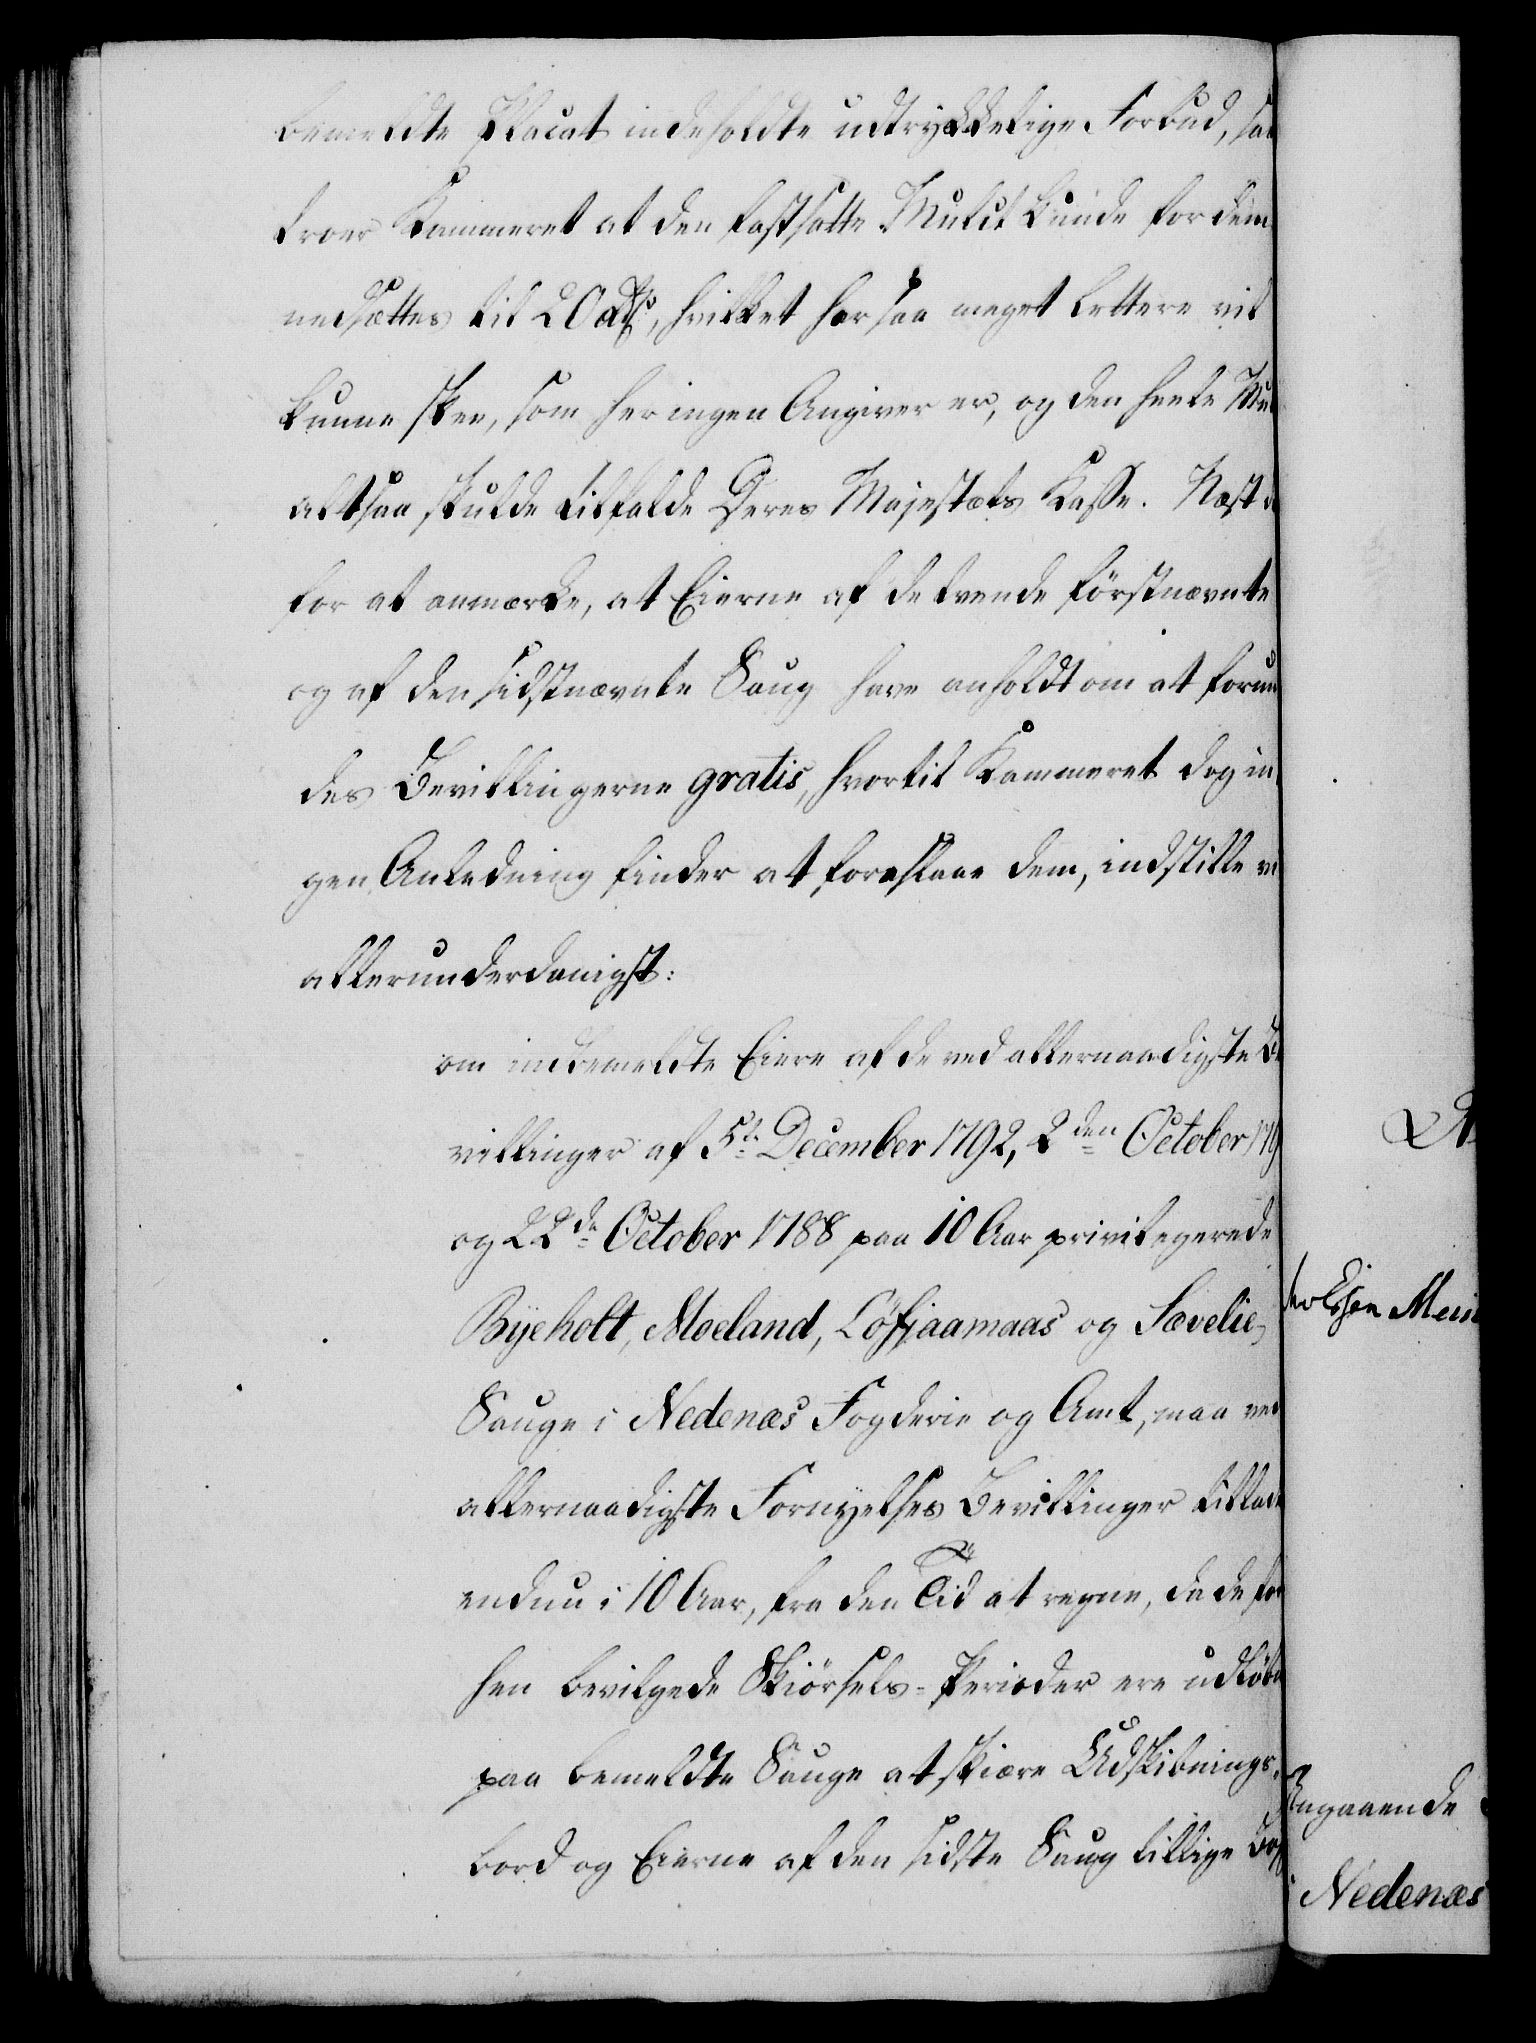 bemeldte Placat indeholdte udtrykkelige Forbud, saa
troer Kammeret at den fastsatte Mulct kunde for dem
nedsættes til 20 Rd, hvilket her saa meget lettere vil
kunne skee, som her ingen Angiver er, og den heele Mul
altsaa skulde tilfalde Deres Majestæts Kasse. Næst de
for at anmærke, at Eierne af de tvende förstnævnte
og af den sidstnævnte Saug have anholdt om at forun
des Bevillingerne gratis, hvortil Kammeret dog in
gen Anledning finder at foreslaae dem, indstille vi
allerunderdanigst:
om indbemeldte Eiere af de ved allernaadigste Be
villinger af 5te December 1792, 2den October 179
og 22de October 1788 paa 10 Aar privilegerede
Byeholt, Moeland, Löfjaamaas og Sævelie
Sauge i Nedenæs Fogderie og Amt, maa ved
allernaadigste Fornyelses Bevillinger tillade
endnu i 10 Aar, fra den Tid at regne, da de for
hen bevilgede Skiörsels-Perioder ere udlöbe
paa bemeldte Sauge at skiære Udskibnings-
bord og Eierne af den sidste Saug tillige
Angaaende
Nedenæs